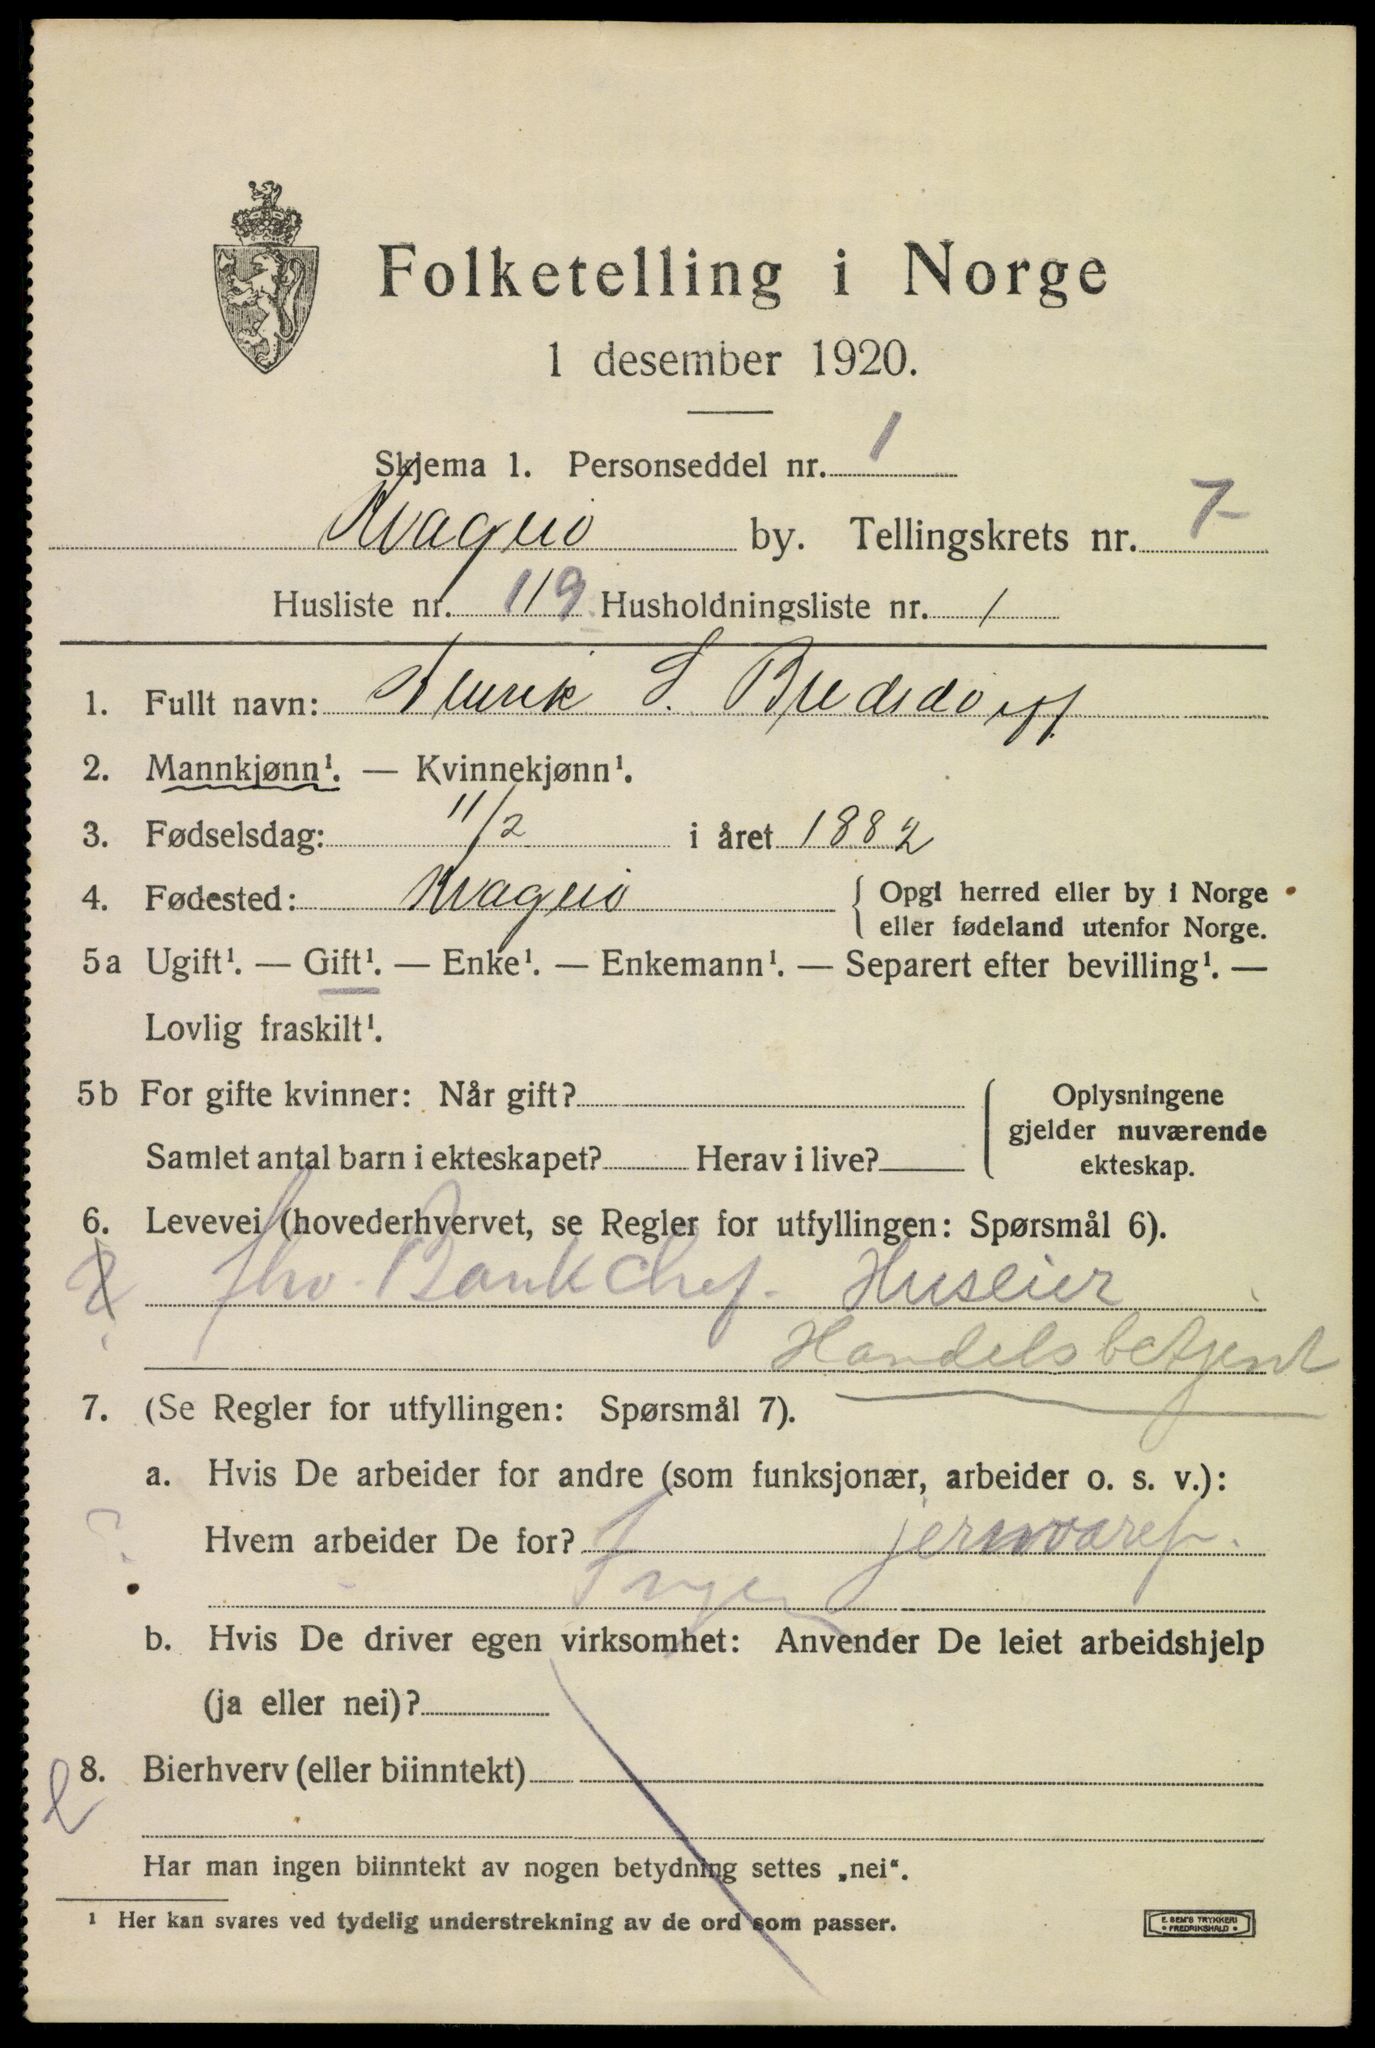 Folketelling i Norge
1 desember 1920.
Skjema 1. Personseddel nr. 1
Kragerø by. Tellingskrets nr. 7
Husliste nr. 119 Husholdningsliste nr. 1
1. Fullt navn: Henrik S. Bredsdorff
2. Mannkjønn¹. — Kvinnekjønn¹.
3. Fødselsdag: 11/2 i året 1882
4. Fødested: Kragerø { Opgi herred eller by i Norge
eller fødeland utenfor Norge.
5a Ugift¹. — Gift¹. — Enke¹. — Enkemann¹. — Separert efter bevilling¹. —
Lovlig fraskilt¹.
5b For gifte kvinner: Når gift? { Oplysningene
gjelder nuværende
Samlet antal barn i ekteskapet? Herav i live? ekteskap.
6. Levevei (hovederhvervet, se Regler for utfyllingen: Spørsmål 6).
fhv. Bankchef. Huseier
Handelsbetjent
7. (Se Regler for utfyllingen: Spørsmål 7).
a. Hvis De arbeider for andre (som funksjonær, arbeider o. s. v.):
Hvem arbeider De for? jernvaref.
Ingen
b. Hvis De driver egen virksomhet: Anvender De leiet arbeidshjelp
(ja eller nei)?
8. Bierhverv (eller biinntekt)
Har man ingen biinntekt av nogen betydning settes „nei“.
¹ Her kan svares ved tydelig understrekning av de ord som passer.
E. SEM'S TRYKKERI
• FREDRIKSHALD •